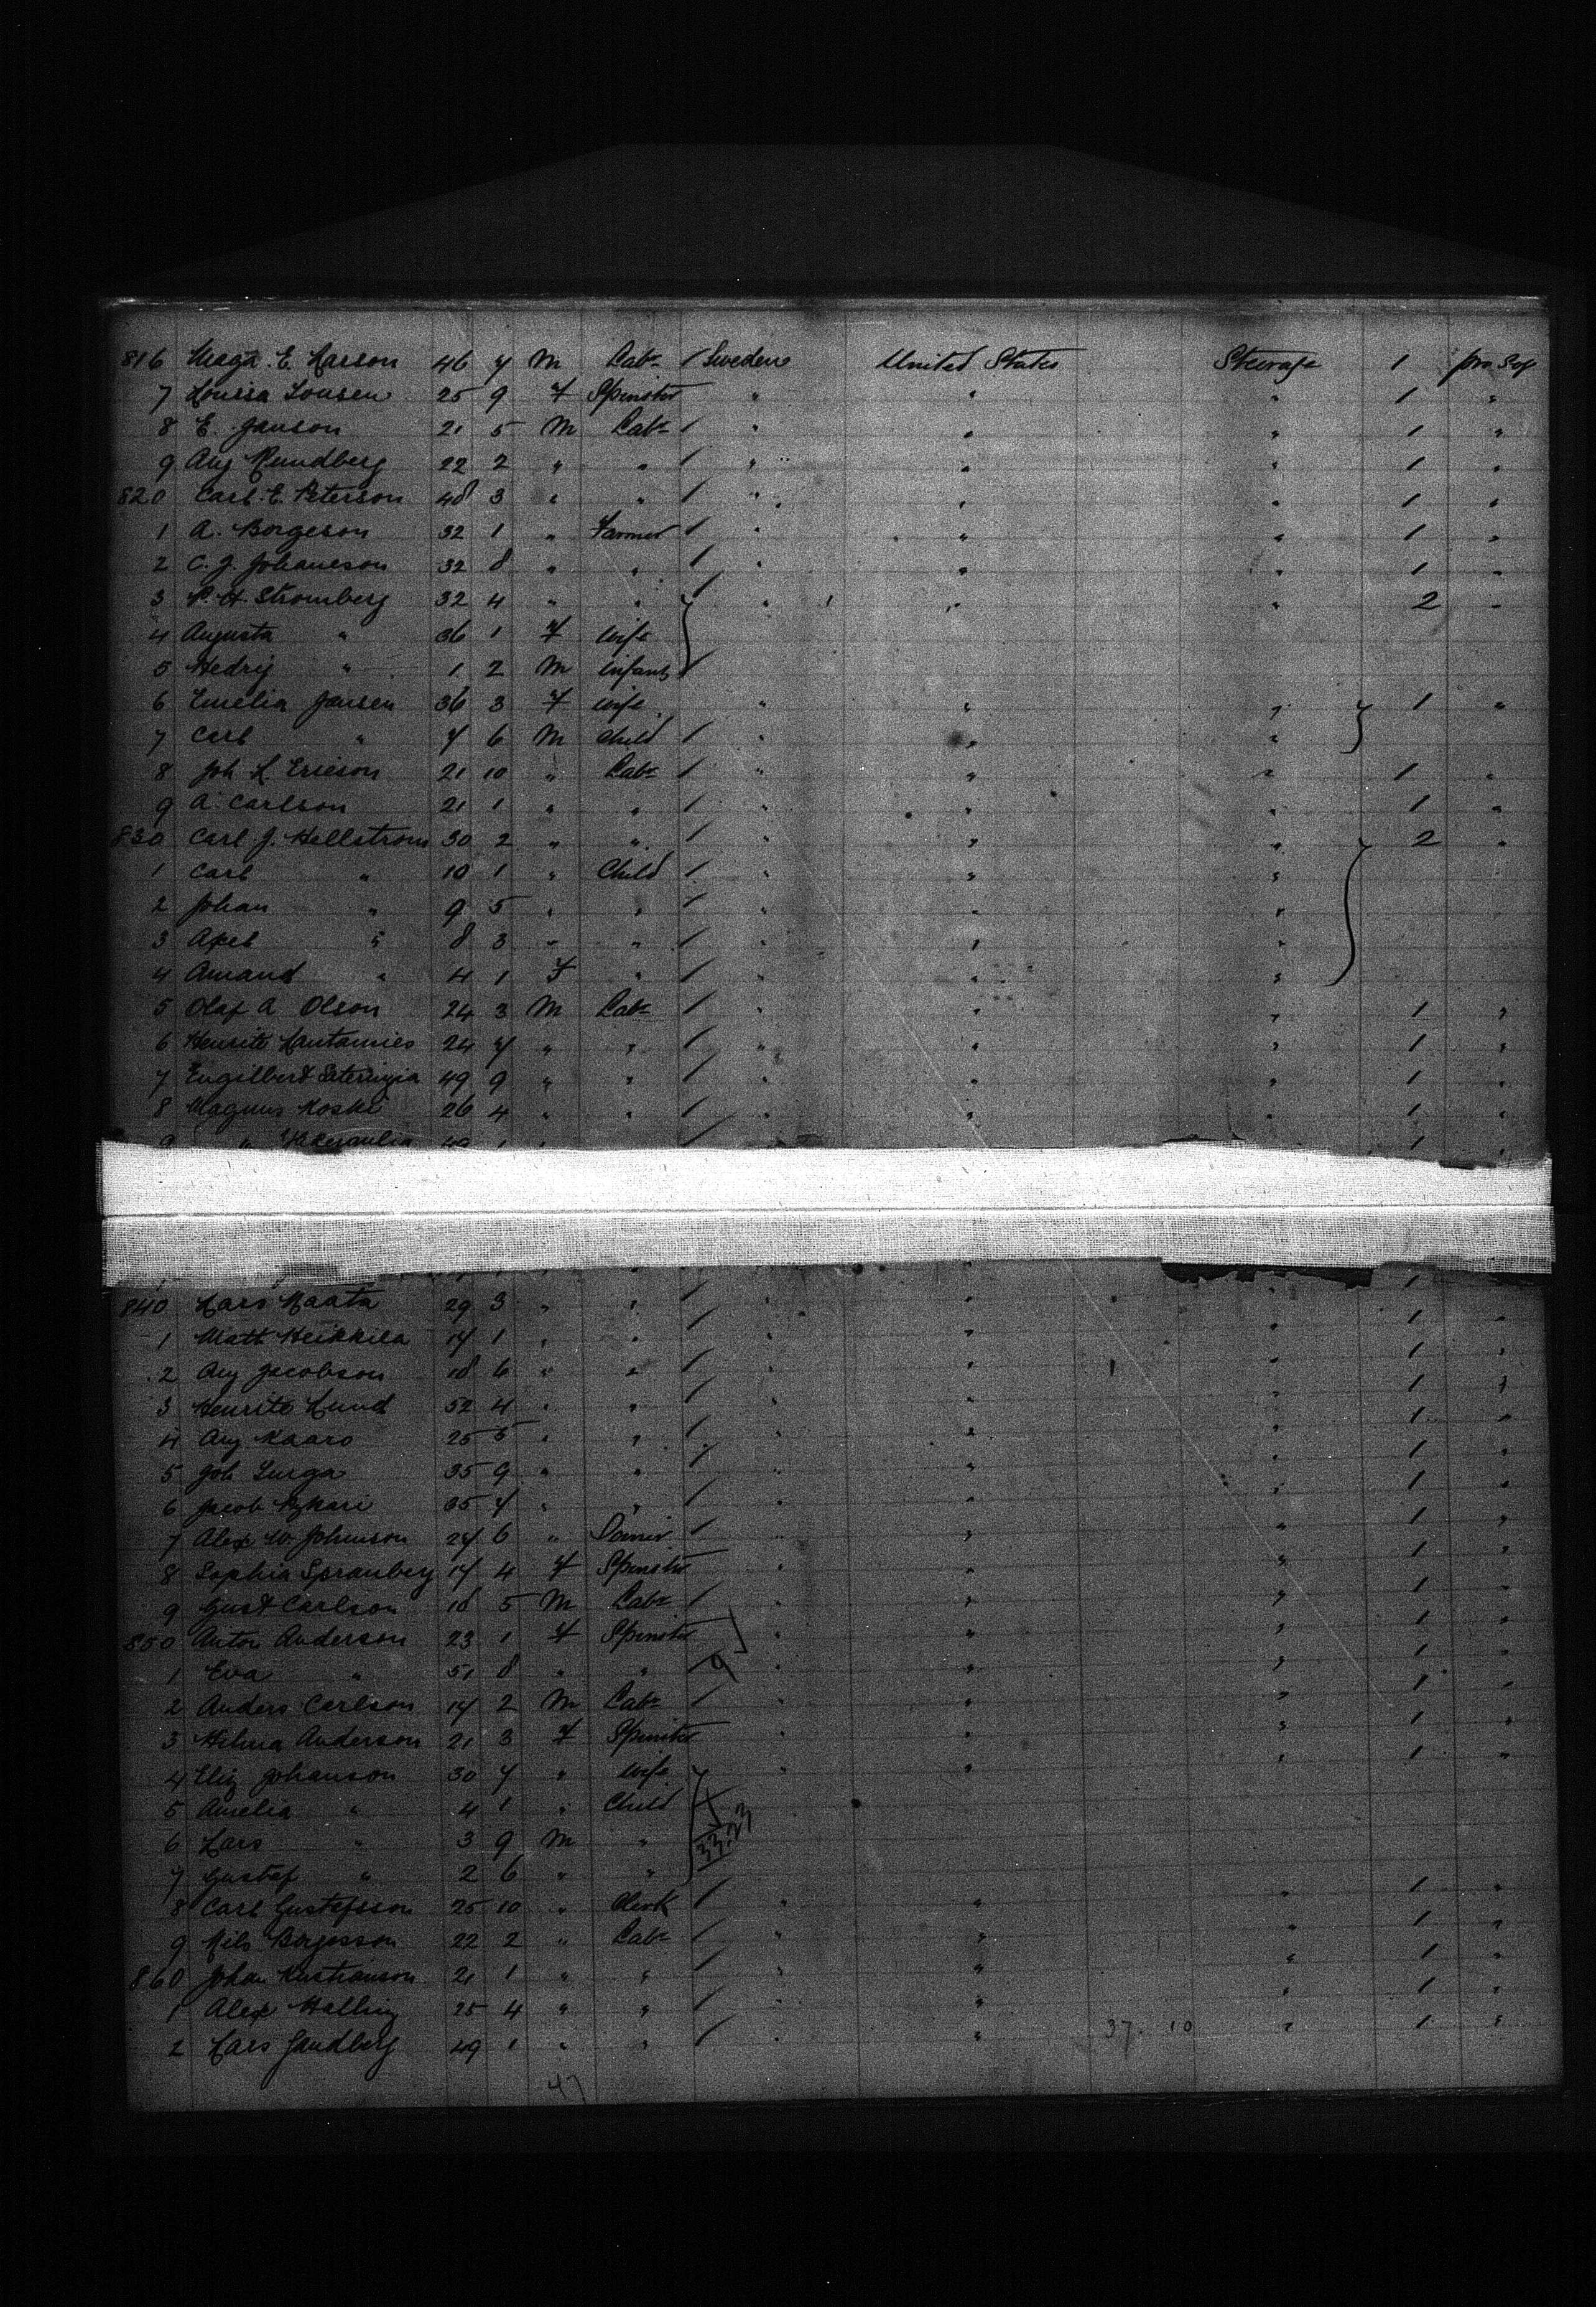 816 Maga. E. Larson 46 7 M Labr Sweden United States Steerage 1 pro Soj
7 Louisa Lousen 25 9 F Spinster " " " 1 "
8 E. Janson 21 5 M Labr " " " 1 "
9 Aug Rundberg 22 2 " " " " " 1 "
820 Carl. E. Peterson 48 3 " " " " " 1 "
1 A. Borgeson 32 1 " Farmer " " " 1 "
2 C. J. Johaneson 32 8 " " " " " 1 "
3 P. H. Stromberg 32 4 " " " " " 2 "
4 Augusta " 36 1 F wife
5 Hedrig " 1 2 M infant
6 Emelia Jansen 36 3 F wife " " " 1 "
7 Carl " 7 6 M Child " " "
8 Joh L Ericson 21 10 " Labr " " " 1 "
9 A. Carlson 21 1 " " " " " 1 "
830 Carl J. Hellstrom 30 2 " " " " " 2 "
1 Carl " 10 1 " Child " " "
2 Johan " 9 5 " " " " "
3 Axel " 8 3 " " " " "
4 Amand " 4 1 F " " " "
5 Olaf A Olson 24 3 M Labr " " " 1 "
6 Henrite Lautamies 24 7 " " " " " 1 "
7 Engilbert 49 9 " " " " " 1 "
8 Magnus Koski 26 4 " " " " " 1 "
9 " 49 1 1
840 Lars Maata 29 3 " " " " " 1 "
1 Matt Heikkila 17 1 " " " " " 1 "
2 Aug Jacobson 18 6 " " " " " 1 "
3 Henrite Lund 52 4 " " " " " 1 "
4 Aug Kaaro 25 5 " " " " " 1 "
5 Joh Surga 35 9 " " " " " 1 "
6 Jacob 35 7 " " " " " 1 "
7 Alex W. Johnson 27 6 " " " " 1 "
8 Sophia Spranberg 17 4 F Spinster " " " 1 "
9 Gust Carlson 18 5 M Labr " " " 1 "
850 Anton Anderson 23 1 F Spinster " " " 1 "
1 Eva " 51 8 " " " " " 1 "
2 Anders Carlson 17 2 M Labr " " " 1 "
3 Hilma Anderson 21 3 F Spinster " " " 1 "
4 Eliz Johanson 30 7 " wife " " " 1 "
5 Amelia " 4 1 " Child
6 Lars " 3 9 M "
7 Gustaf " 2 6 " "
8 Carl Gustafsson 25 10 " Clerk " " " 1 "
9 Nils Borgesson 22 2 " Labr " " " 1 "
860 Johan Kustianson 21 1 " " " " " 1 "
1 Alex Halling 25 4 " " " " " 1 "
2 Lars Sandberg 49 1 " " " " 37. 10 " 1 "
47